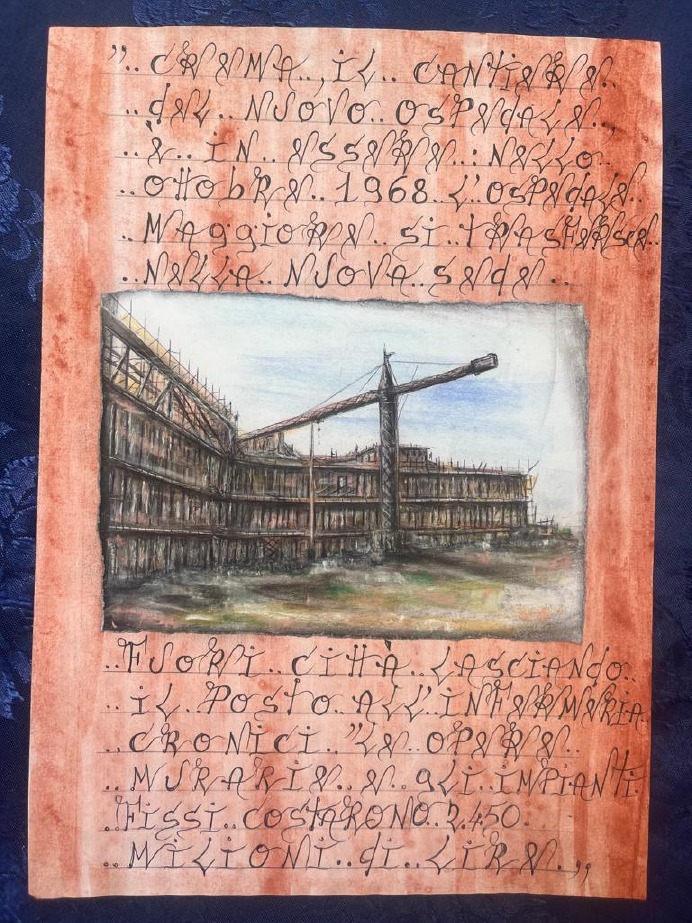 ".. CREMA.., iL.. CANTiERE..
..dEL.. NUOVO.. OSPEdALE..,
..è.. iN.. ESSERE..: NELLO..
..OttobRE.. 1968.. L'OSPEdALE..
..MAggiORE.. Si.. tRASFERSCE..
..NELLA.. NUOVA.. SEdE..
..FUORi.. CittÀ.. LASCiANdO..
..iL.. POSTO.. ALL'iNFERMERiA..
..CRONiCi.. "LE.. OPERE..
..MURARiE.. E.. gLi.. iMPiANti..
..FiSSi.. COSTARONO.. 2.450..
..MiLiONi.. di.. LiRE..,,